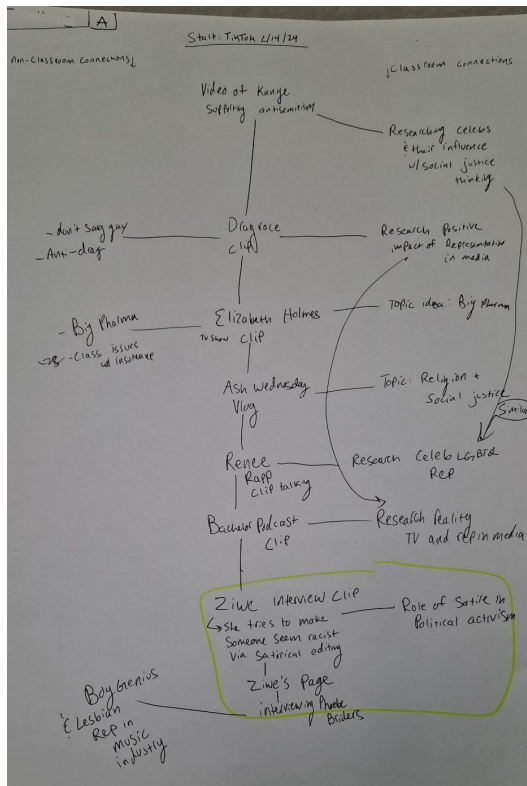 A
Start: TikTok 2/14/24
Non-Classroom Connections↓
↓Classroom connections
Video of Kanye
Supporting antisemitism
Researching celebs
& their influence
w/social justice
thinking
- don't say gay
- Anti-drag
Dragrace
Clip
Research Positive
impact of Representation
in media
- Big Pharma
- Class issues
w/ insurance
Elizabeth Holmes
TV show Clip
Topic idea: Big Pharma
Ash Wednesday
Vlog
Topic: Religion +
Social justice
Similar
Renee
Rapp
Clip talking
Research Celeb LGBTQ
Rep
Bachelor Podcast
Clip
Research Reality
TV and rep in media
Ziwe Interview Clip
↳ She tries to make
Someone seem racist
via Satirical editing
Role of Satire in
Political activism
Ziwe's Page
interviewing Phoebe
Briders
Boy Genius
& Lesbian
Rep in
music
industry